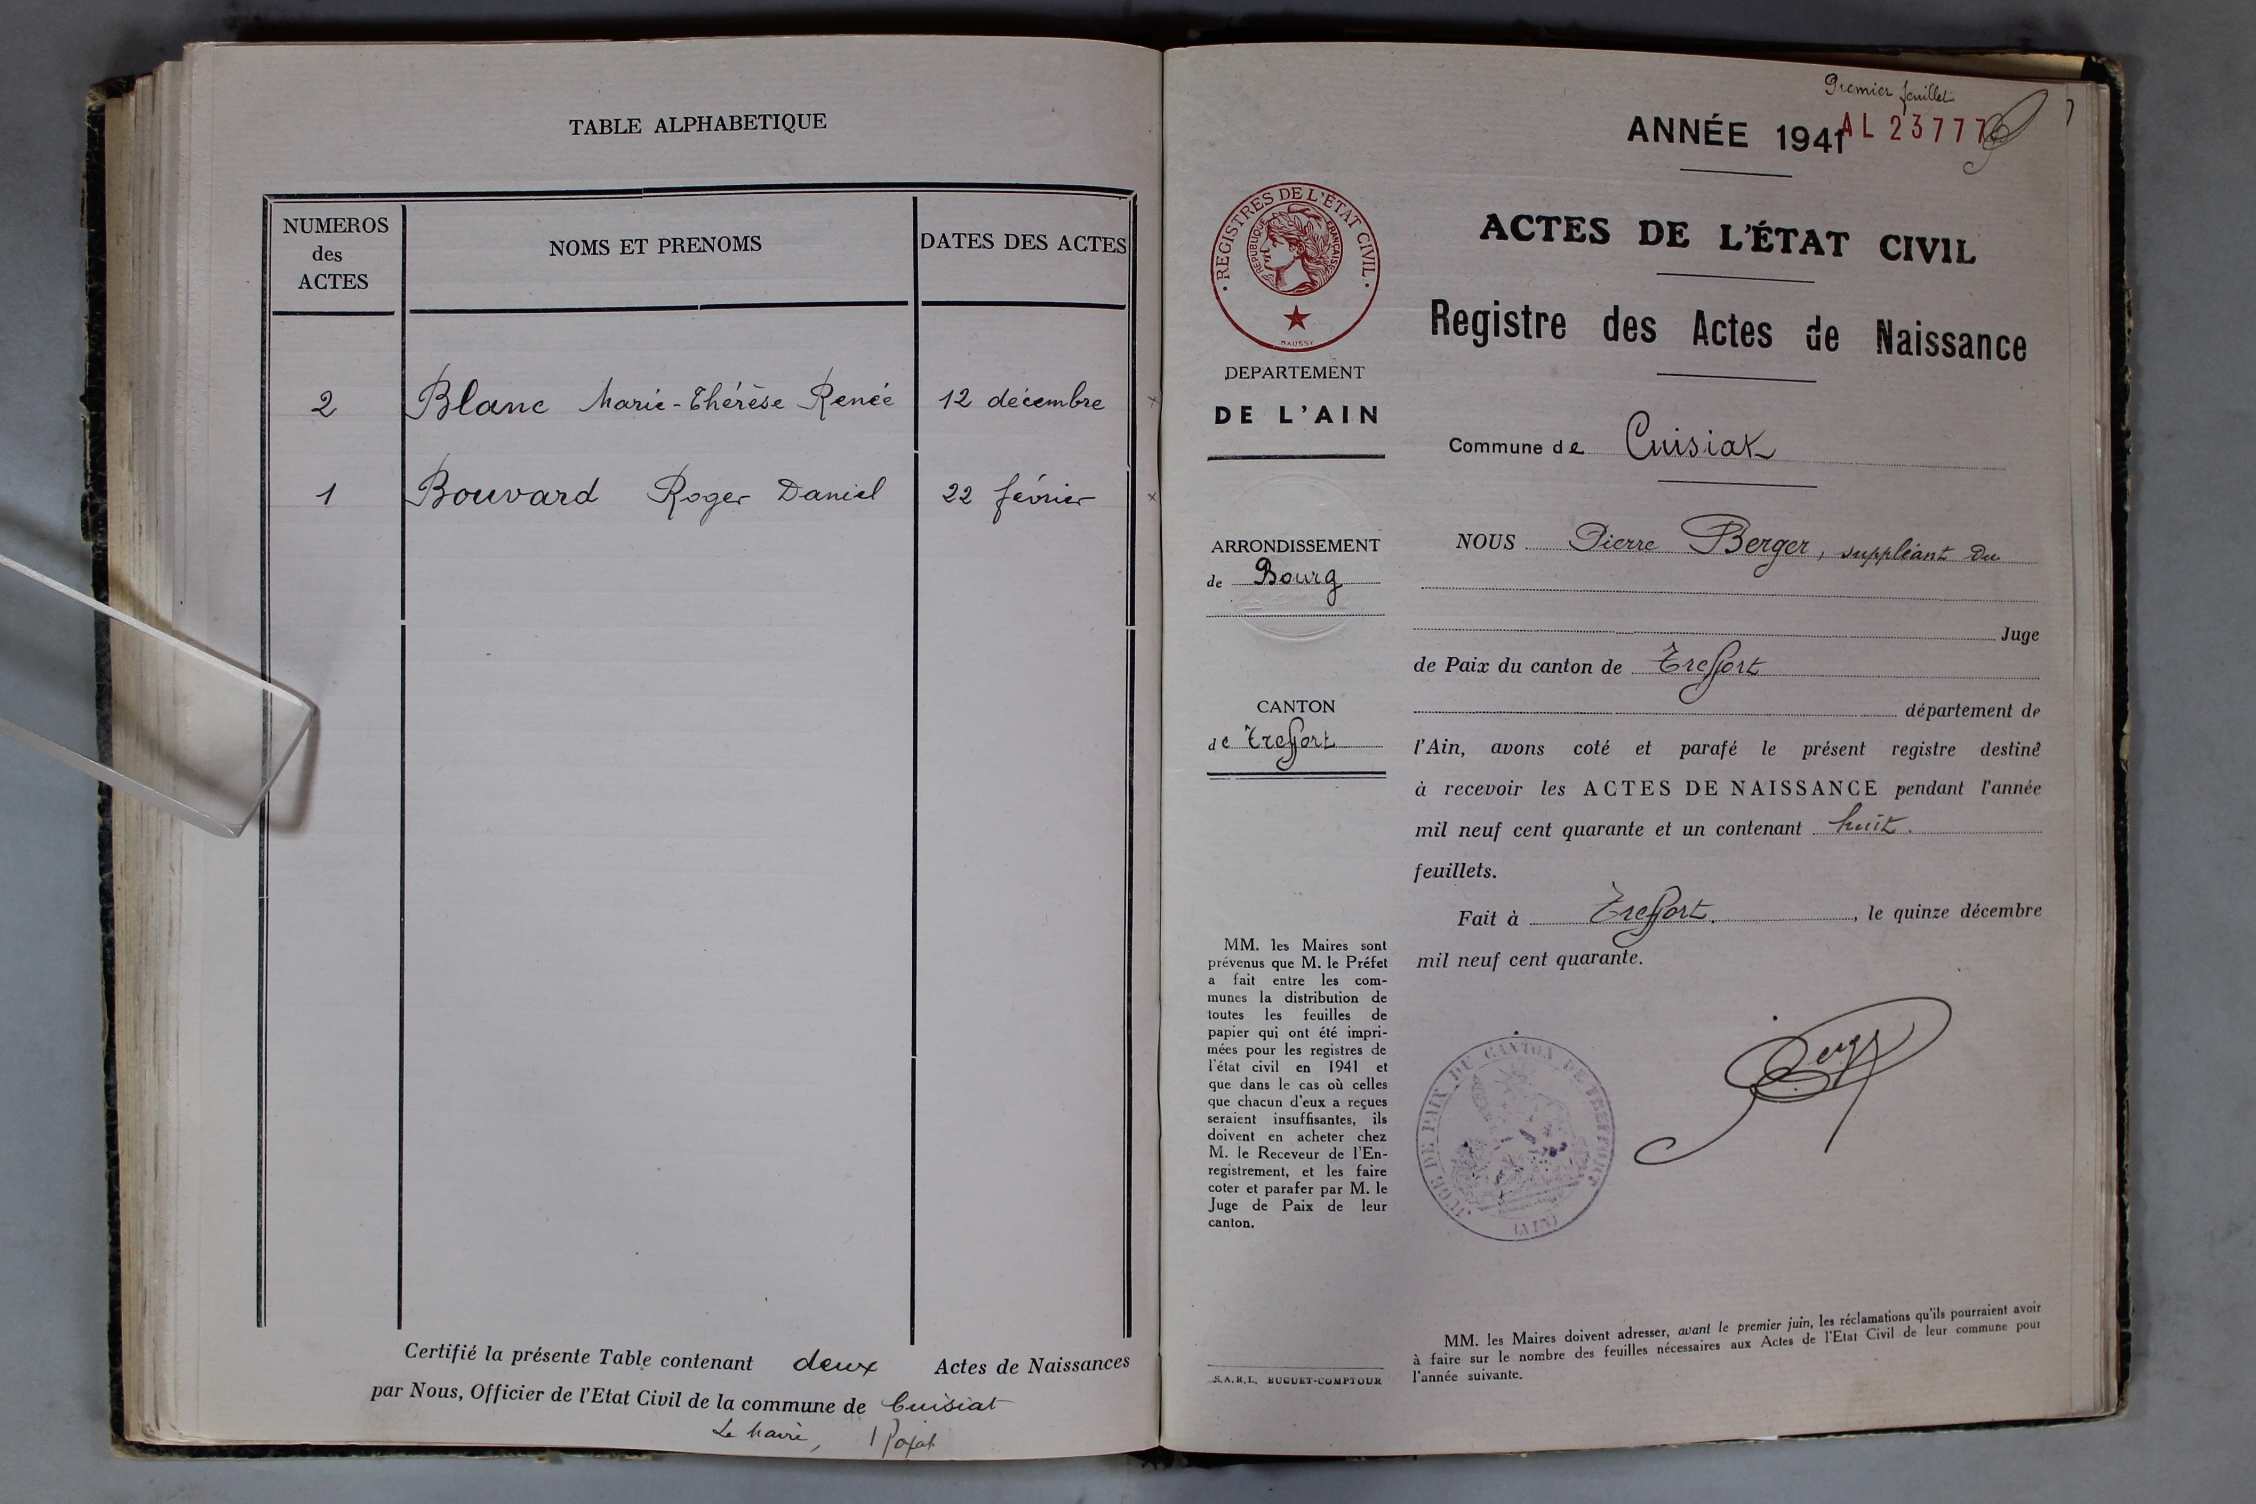 TABLE ALPHABETIQUE
NUMEROS
des
ACTES
NOMS ET PRENOMS
DATES DES ACTES
2 Blanc Marie-Thérèse Renée 12 décembre
1 Bouvard Roger Daniel 22 février
Certifié la présente Table contenant deux Actes de Naissances
par Nous, Officier de l'Etat Civil de la commune de Cuisiat
Le Maire,
Premier feuillet
ANNÉE 1941
AL 23777
REGISTRES DE L'ÉTAT CIVIL
REPUBLIQUE FRANÇAISE
DEPARTEMENT
DE L'AIN
ARRONDISSEMENT
de Bourg
CANTON
de Treffort
MM. les Maires sont
prévenus que M. le Préfet
a fait entre les com-
munes la distribution de
toutes les feuilles de
papier qui ont été impri-
mées pour les registres de
l'état civil en 1941 et
que dans le cas où celles
que chacun d'eux a reçues
seraient insuffisantes, ils
doivent en acheter chez
M. le Receveur de l'En-
registrement, et les faire
coter et parafer par M. le
Juge de Paix de leur
canton.
S.A.R.L. BUGUET-COMPTOUR
ACTES DE L'ÉTAT CIVIL
Registre des Actes de Naissance
Commune de Cuisiat
NOUS Pierre Berger, suppléant du
Juge
de Paix du canton de Treffort
département de
l'Ain, avons coté et parafé le présent registre destiné
à recevoir les ACTES DE NAISSANCE pendant l'année
mil neuf cent quarante et un contenant huit.
feuillets.
Fait à Treffort., le quinze décembre
mil neuf cent quarante.
JUGE DE PAIX DU CANTON DE TREFFORT
(AIN)
Berger
MM. les Maires doivent adresser, avant le premier juin, les réclamations qu'ils pourraient avoir
à faire sur le nombre des feuilles nécessaires aux Actes de l'Etat Civil de leur commune pour
l'année suivante.